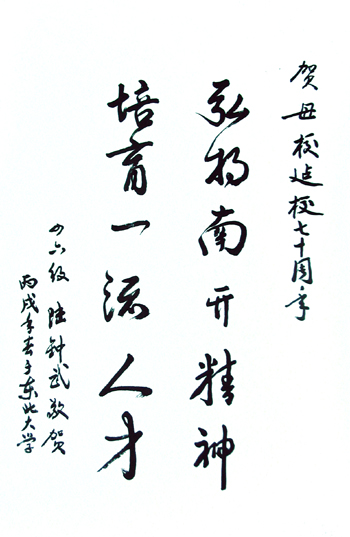 贺母校建校七十周年
弘扬南开精神
培育一流人才
四六级 陆钟武敬贺
丙戌年春于东北大学